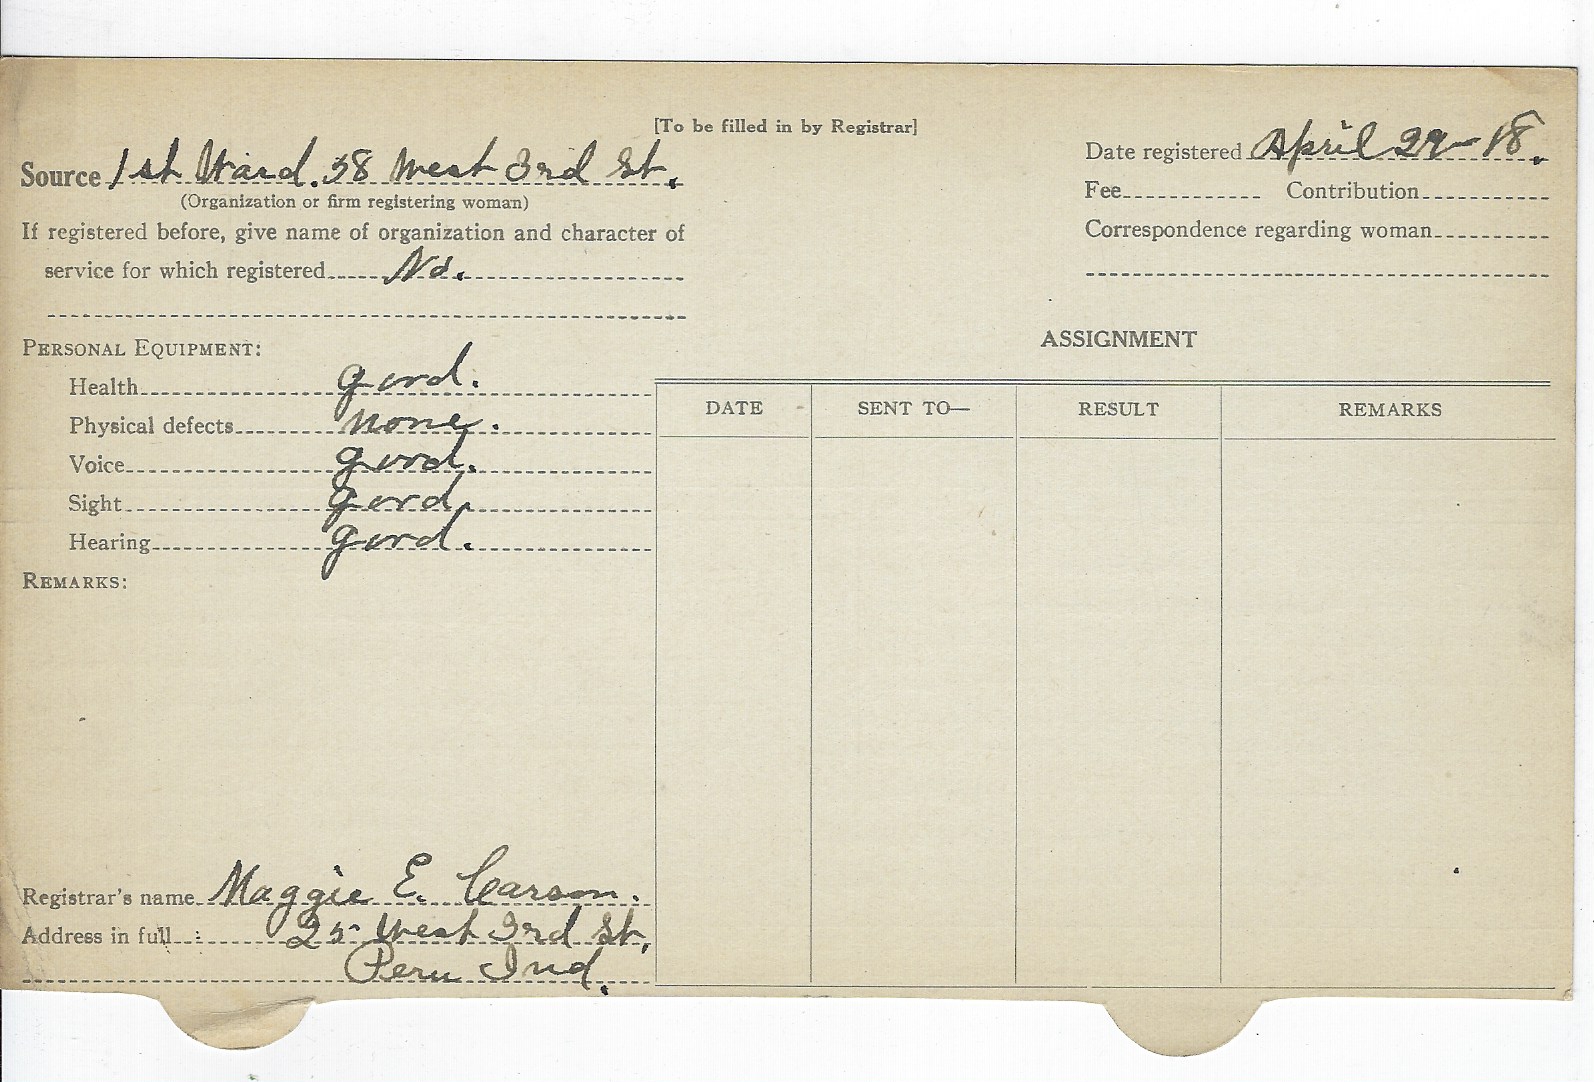 [To be filled in by Registrar]
Source 1st Ward. 58 West 3rd St.
(Organization or firm registering woman)
If registered before, give name of organization and character of
service for which registered No.
Date registered April 29-18.
Fee Contribution
Correspondence regarding woman
PERSONAL EQUIPMENT:
Health good.
Physical defects none.
Voice good.
Sight good.
Hearing good.
REMARKS:
ASSIGNMENT
DATE SENT TO— RESULT REMARKS
Registrar's name Maggie E. Carson.
Address in full 25 West 3rd St,
Peru Ind.